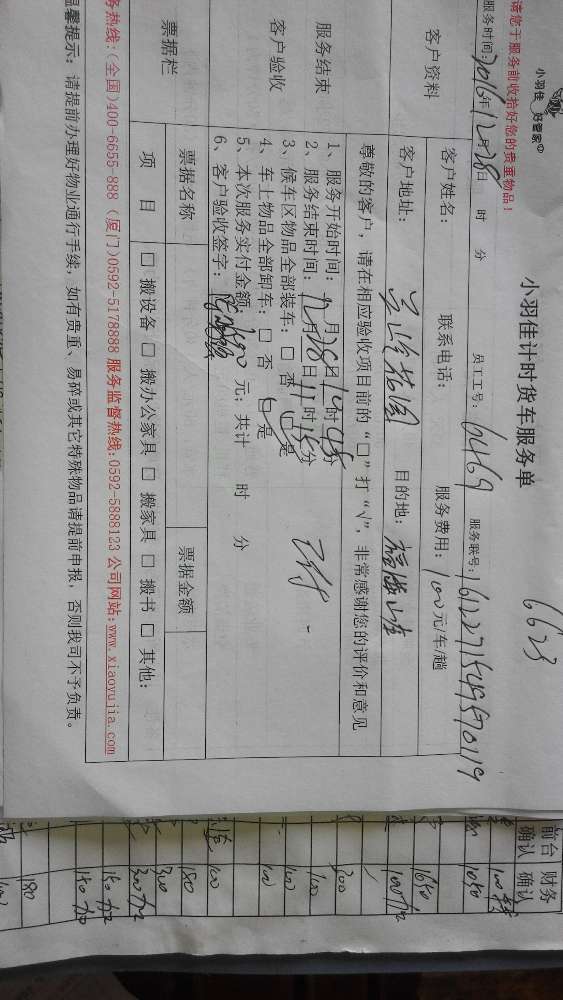 小羽佳 好管家
小羽佳计时货车服务单
6623
请您于服务前收拾好您的贵重物品！
服务时间：2016年12月28日 时 分 员工工号：6469 服务联号：
客户资料
客户姓名： 联系电话： 服务费用：100元/车/趟
客户地址： 目的地：
尊敬的客户，请在相应验收项目前的“□”打“√”，非常感谢您的评价和意见
服务结束
客户验收
1、服务开始时间：
2、服务结束时间：12月28日11时15分
3、候车区物品全部装车：□ 否 □ 是
4、车上物品全部卸车：□ 否 □ 是
5、本次服务实付金额：100元；共计 时 分
6、客户验收签字：
票据栏
票据名称 票据金额
项 目 □ 搬设备 □ 搬办公家具 □ 搬家具 □ 搬书 □ 其他：
务热线：(全国)400-6655-888 (厦门)0592-5178888 服务监督热线：0592-5888123 公司网站：www.xiaoyujia.com
温馨提示：请提前办理好物业通行手续，如有贵重、易碎或其它特殊物品请提前申报，否则我司不予负责。
前台确认 财务确认
1650
200
100
100
100
180
300
180